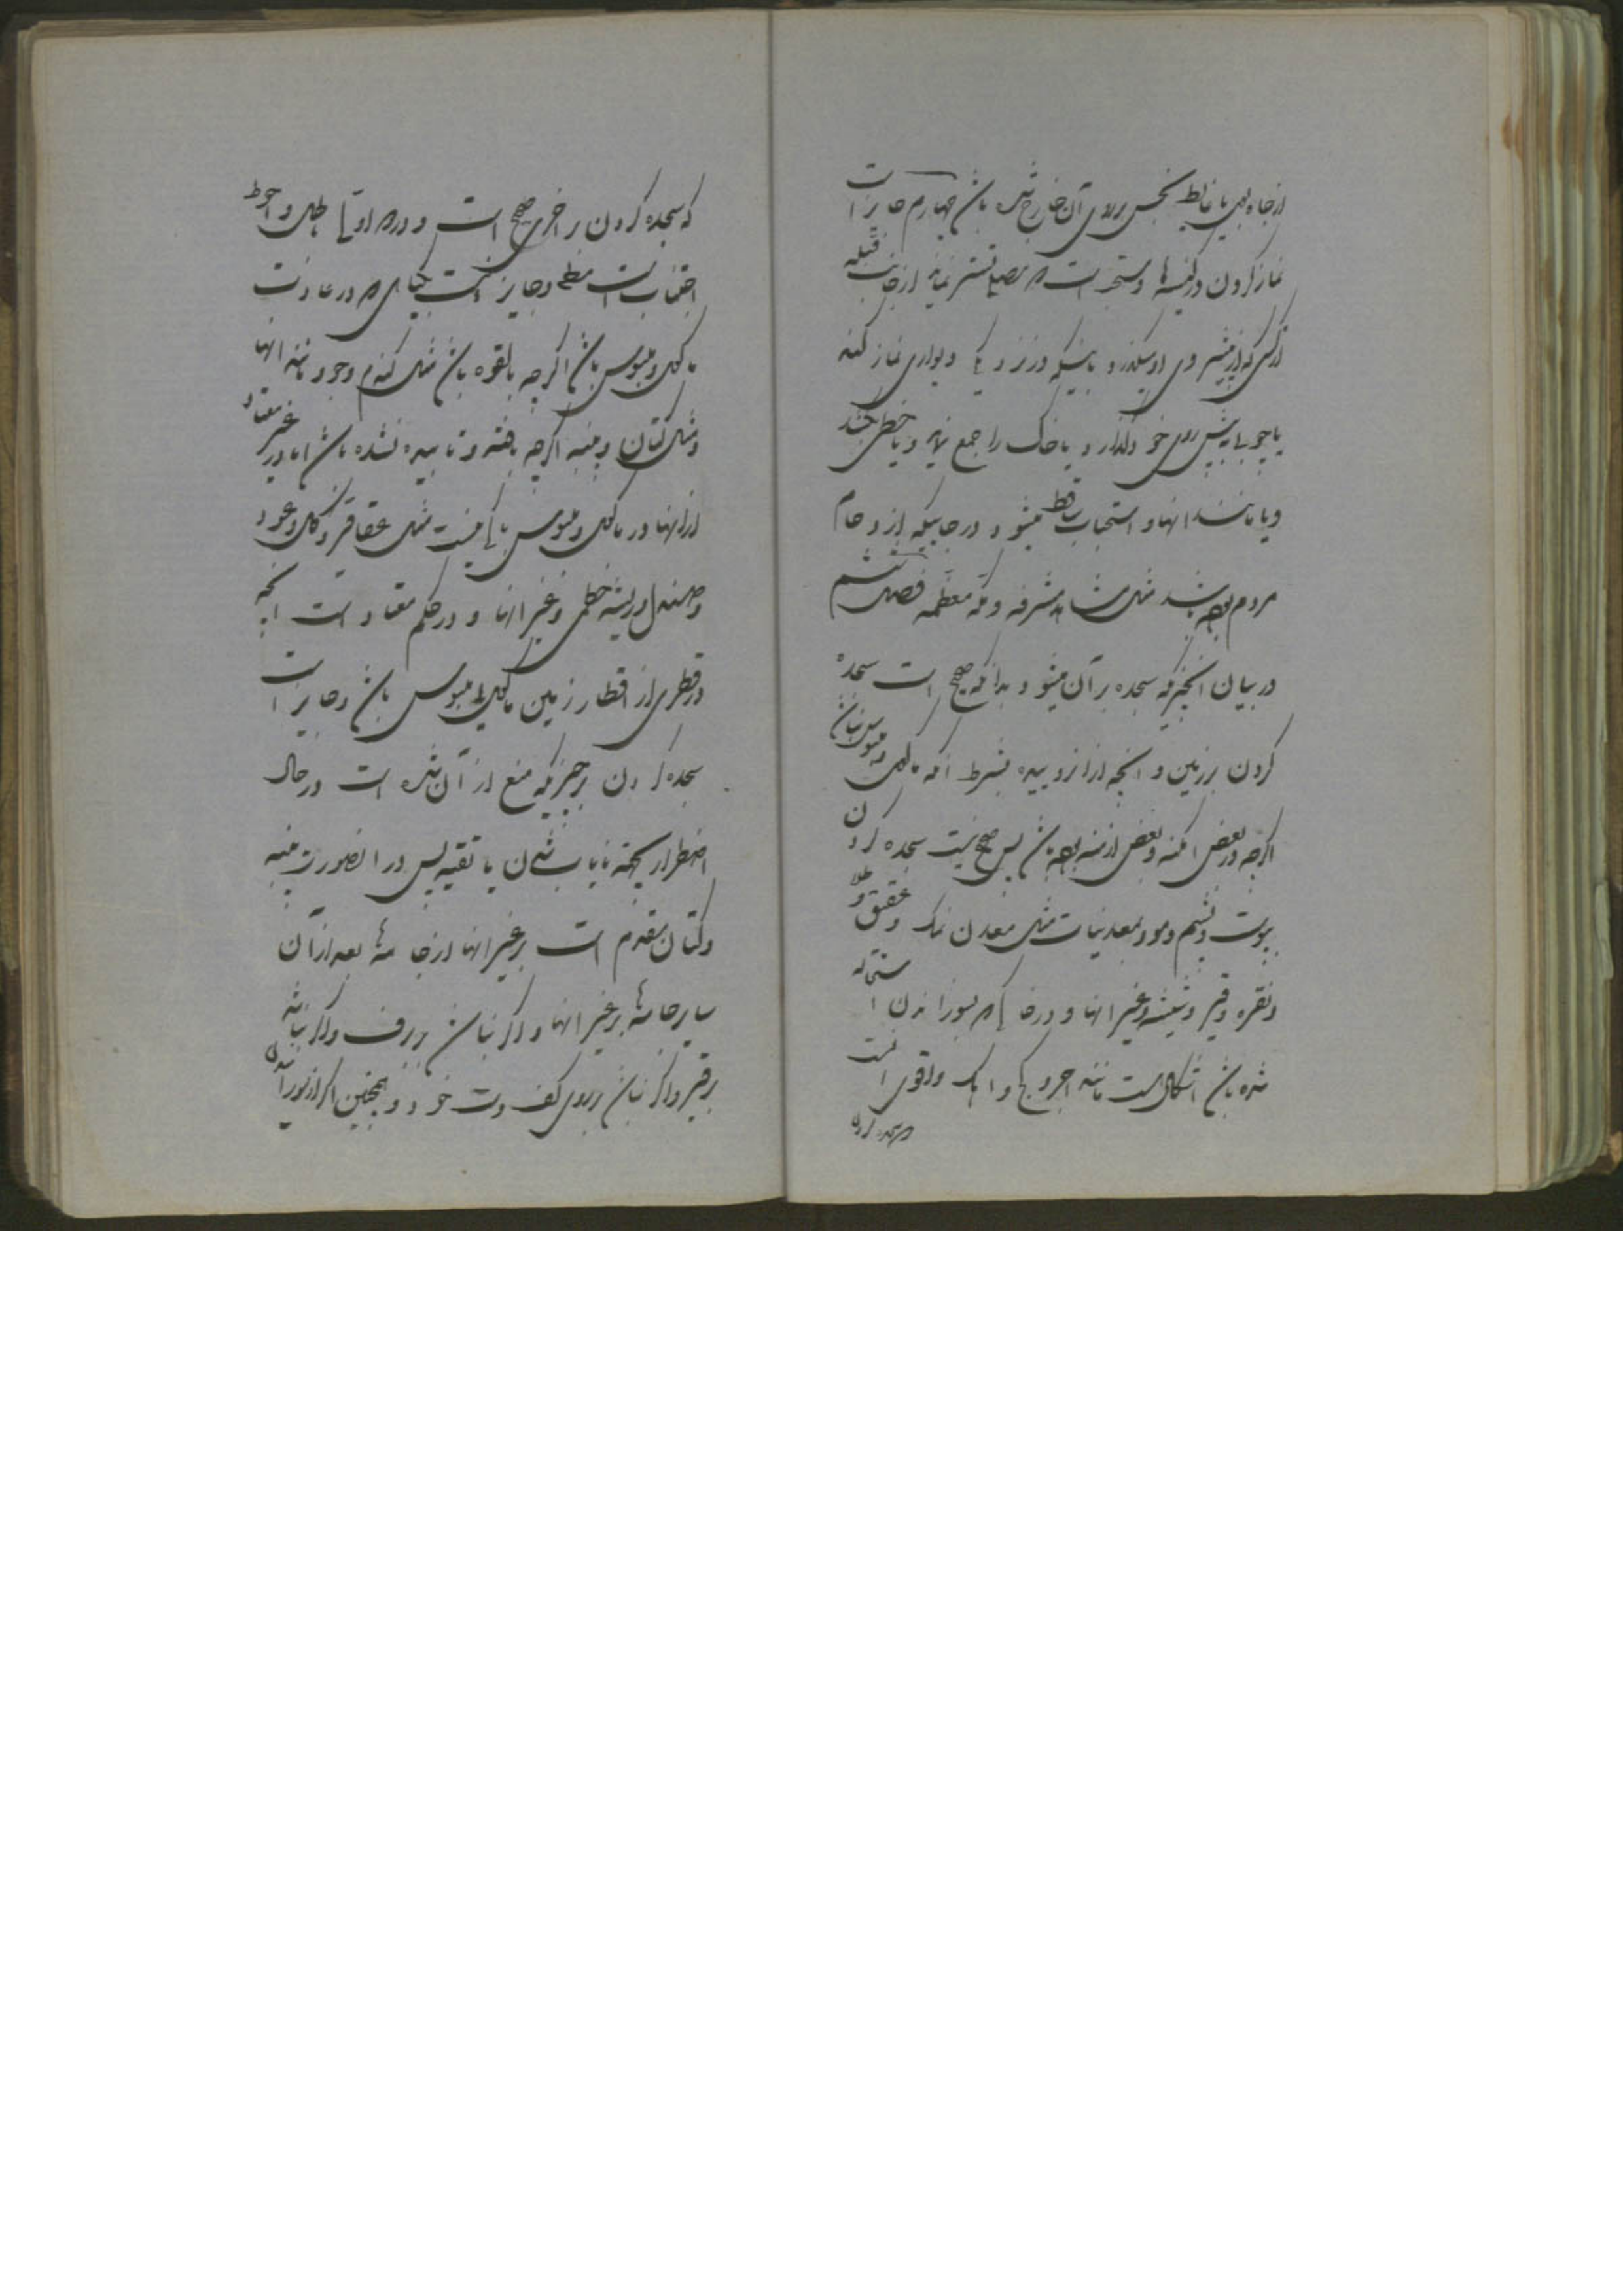 از چاه بول یا غایط نجس بروی آن خارج شده باشد چهارم جایز است
نماز کردن در کنیسه‌ها و مستحب است که مصلی تستر نماید از جانب قبله
از کسی که از پیش روی او میگذرد باینکه در نزدیک دیواری نماز کند
یا چوبی به پیش روی خود بگذارد یا خاک را جمع نماید و یا خطی بکشد
و یا مانند اینها و استحباب ساقط میشود در جاییکه ازدحام
مردم بوده باشد مثل مشاهد مشرفه و مکه معظمه فصل ششم
در بیان آنچیزیکه سجده بر آن میشود بدانکه صحیح است سجده
کردن بر زمین و آنچه از او روییده بشرط آنکه ماکول و ملبوس نباشد
اگرچه در بعض امکنه و بعض ازمنه بوده باشد پس صحیح نیست سجده کردن
بپوست و پشم و مو و معدنیات مثل معدن نمک و عقیق و طلا
و نقره و قیر و شیشه و غیر اینها و در خاکیکه بسوزانیدن استحاله
شده باشد اشکال است مانند آجر و گچ و آهک و اقوی آنست
که سجده کردن
که سجده کردن بر اخری صحیح است و در دو اولی باطل و احوط
اجتناب است مطلقا و جایز نیست بگیاهی که در عادت
ماکول و ملبوس باشد اگرچه بالقوه باشد مثل گندم و جو و مانند آنها
و مثل کتان و پنبه اگرچه بافته و تابیده نشده باشد اما در غیر معتاد
از اینها در ماکول و ملبوس باکی نیست مثل عقاقیر و گل و عود
و صندل و ریشه خطمی و غیر اینها و در حکم معتاد است آنچه
در قطری از اقطار زمین ماکول یا ملبوس باشد و جایز است
سجده کردن بر چیزیکه منع از آن شده است در حال
اضطرار بجهت نایاب شدن یا تقیه پس در اینصورت پنبه
و کتان مقدم است بر غیر اینها از جامه‌ها بعد از آن
سایر جامه‌ها بر غیر اینها و اگر نباشد بر برف و اگر نباشد
بر قیر و اگر نباشد بر روی کف دست خود و همچنین اگر